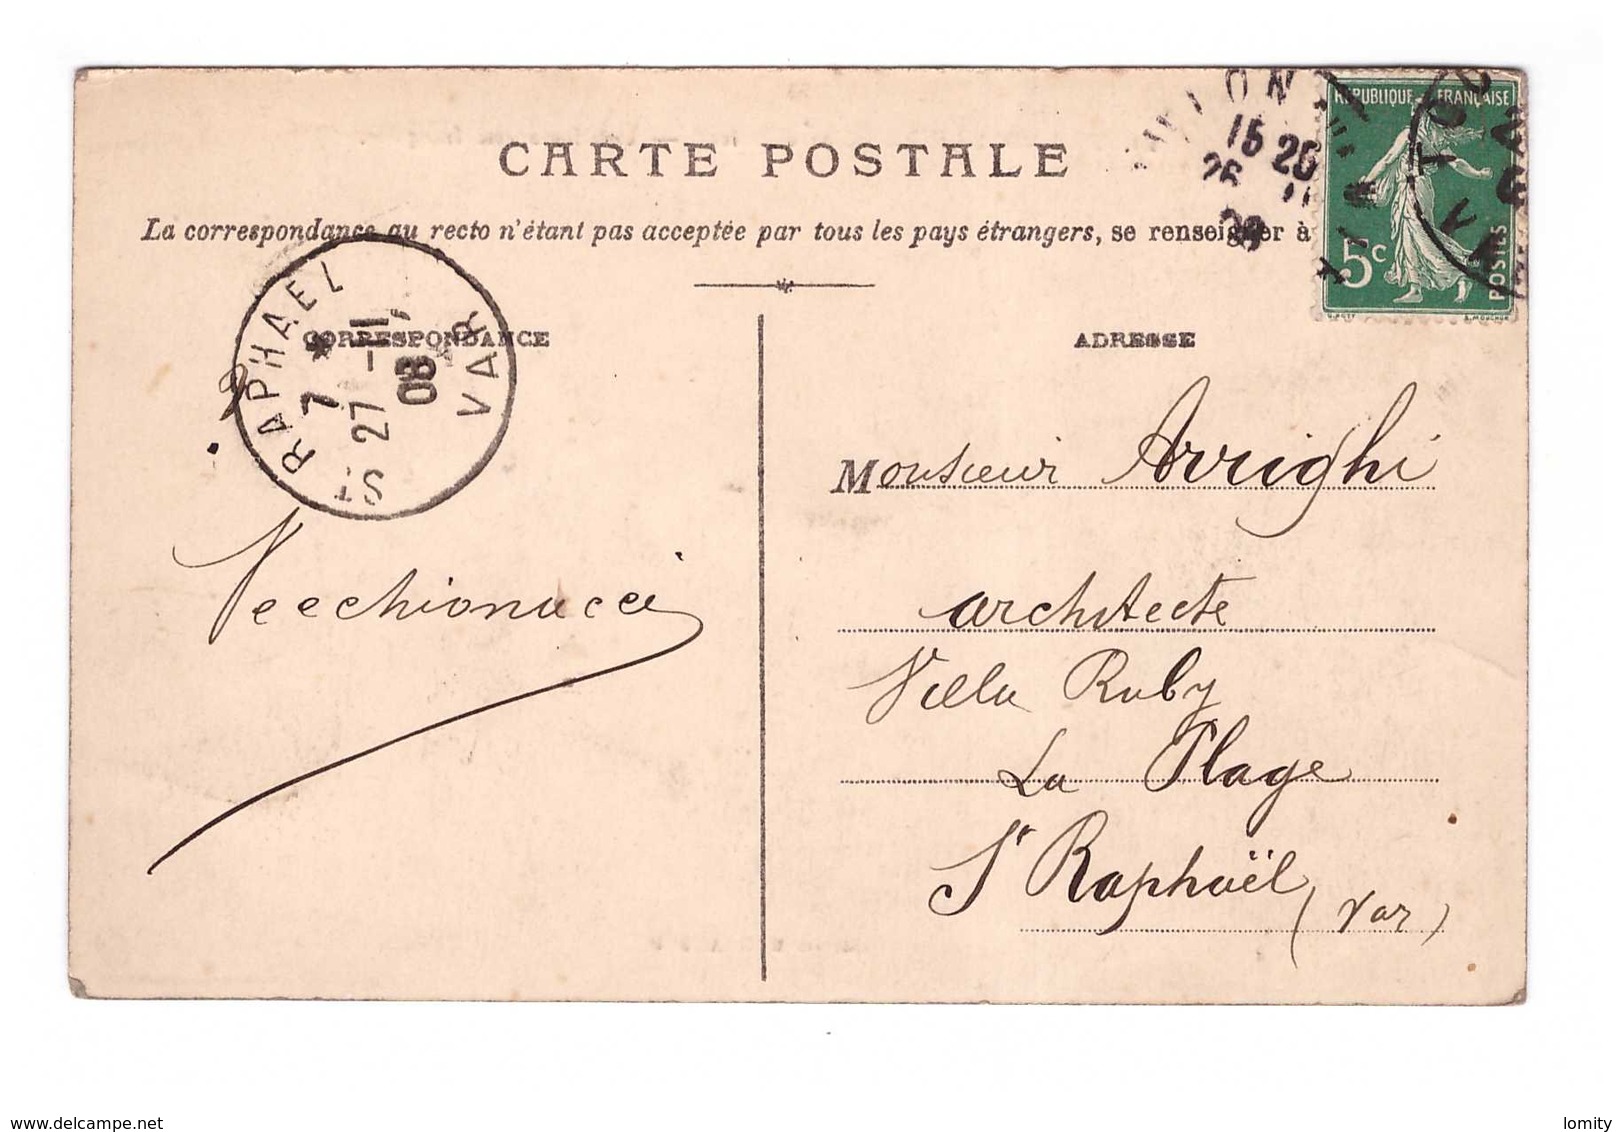 CARTE POSTALE
La correspondance au recto n'étant pas acceptée par tous les pays étrangers, se renseigner à
RÉPUBLIQUE FRANÇAISE
5c
POSTES
15 26
26
CORRESPONDANCE
ADRESSE
ST RAPHAEL
7
27 -11
08
VAR
Monsieur Arrighi
Vecchionacci
architecte
Villa Ruby
La Plage
St Raphaël
(Var)
www.delcampe.net
lomity